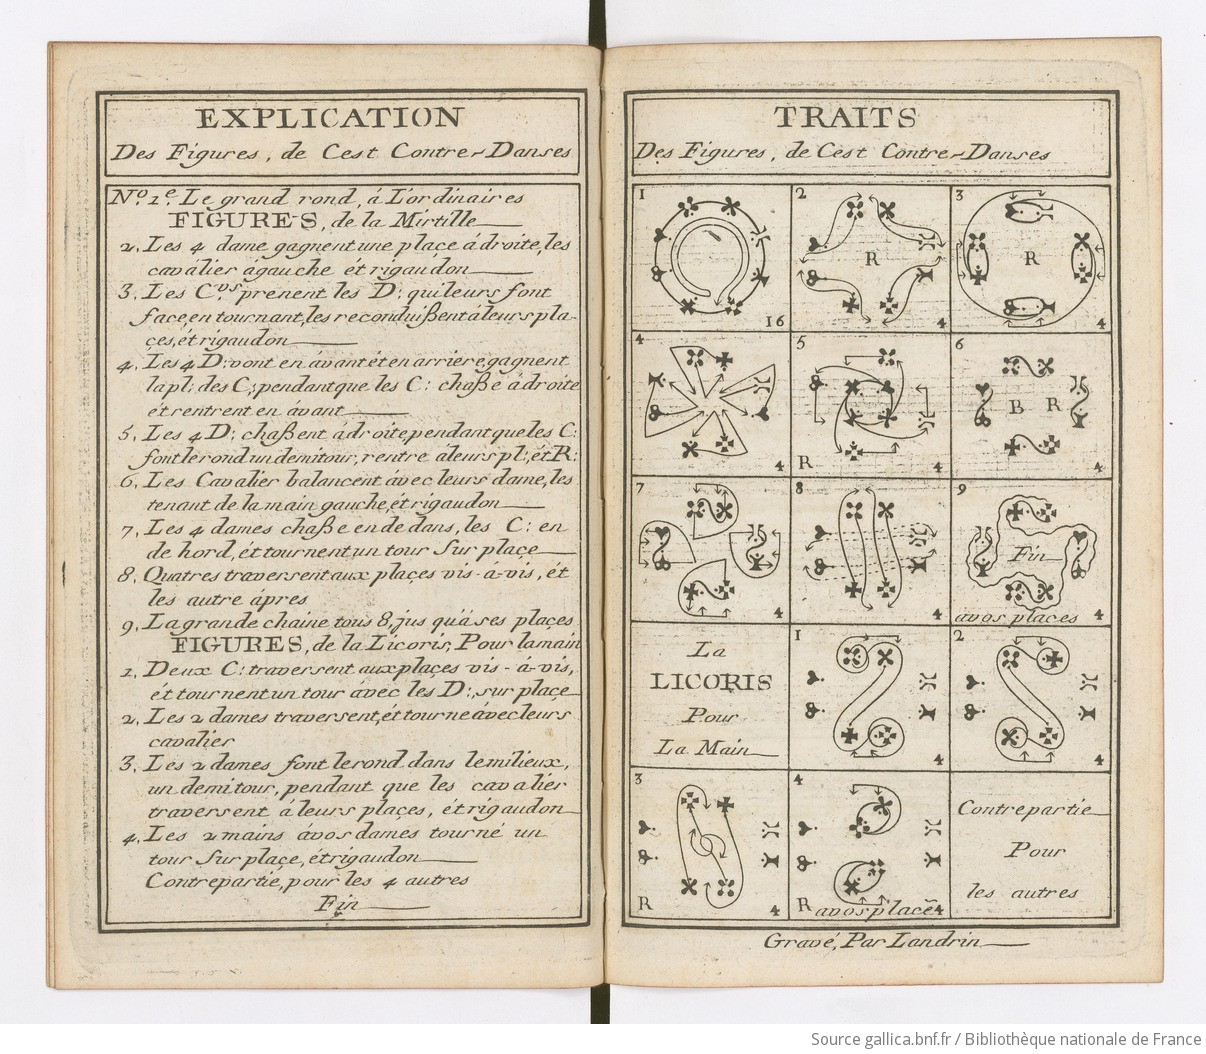 EXPLICATION
Des Figures, de Cest Contre-Danses
No. 1e. Le grand rond, á L'ordinaires
FIGURES, de la Mirtille
2. Les 4 dame gagnent une plaçe á droite, les
cavalier ágauche ét rigaudon
3. Les C.vrs prenent les D: qui leurs font
façe, en tournant, les reconduißent áleurs pla-
çes, ét rigaudon
4. Les 4 D: vont en ávant ét en arriere, gagnent
la pl: des C; pendant que les C: chaße ádroite
ét rentrent en ávant
5. Les 4 D; chaßent ádroite, pendant que les C:
font le rond un demi tour, rentre áleurs pl:, ét R:
6. Les Cavalier balancent ávec leurs dame, les
tenant de la main gauche, ét rigaudon
7. Les 4 dames chaße en dedans, les C: en
de hord, ét tournent un tour sur plaçe
8. Quatres traversent aux plaçes vis-á-vis, ét
les autre ápres
9. La grande chaine tous 8, jus qu'á ses plaçes
FIGURES, de la Licoris, Pour la main
1. Deux C: traversent aux plaçes vis-á-vis,
ét tournent un tour avec les D:, sur plaçe
2. Les 2 dames traversent, ét tourne ávec leurs
cavalier
3. Les 2 dames font le rond dans le milieux,
un demi tour, pendant que les cavalier
traversent áleurs plaçes, ét rigaudon
4. Les 2 mains a vos dames tourné un
tour sur plaçe, ét rigaudon
Contrepartie, pour les 4 autres
Fin
TRAITS
Des Figures, de Cest Contre-Danses
1
16
2
R
4
3
R
4
4
4
5
R
4
6
B R
4
7
4
8
4
9
Fin
avos places
4
La
LICORIS
Pour
La Main
1
4
2
4
3
R
4
4
R
avos place
4
Contrepartie
Pour
les autres
Gravé, Par Landrin
Source gallica.bnf.fr / Bibliothèque nationale de France